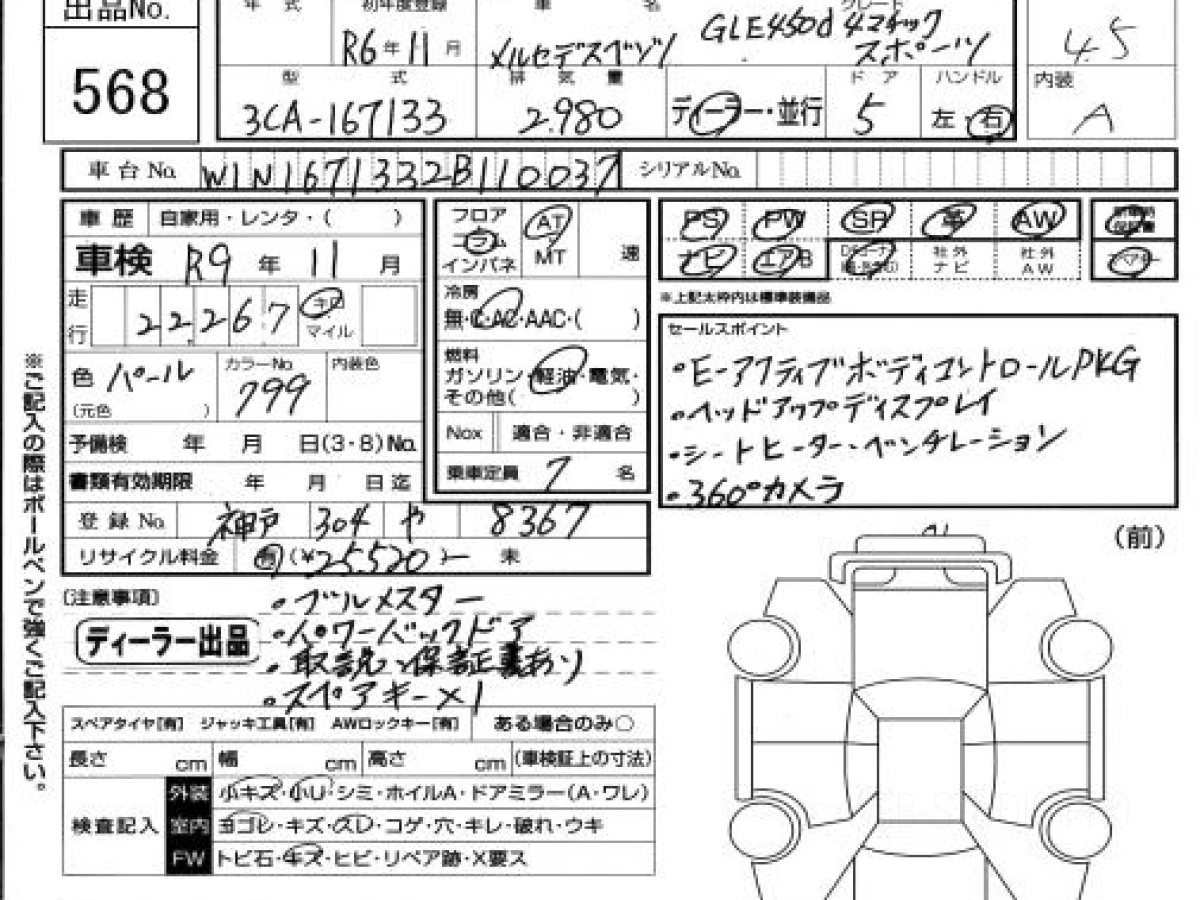 出品No.
568
年 式
初年度登録
R6年11月
車 名
メルセデスベンツ
グレード
GLE450d 4マチック
スポーツ
4.5
型 式
3CA-167133
排 気 量
2.980
ディーラー・並行
ド ア
5
ハンドル
左・右
内装
A
車 台 No. W1N1671332B110037
シリアルNo.
車 歴 自家用・レンタ・( )
車検 R9年 11月
走行 22,267 キロ
マイル
色 パール
(元色 )
カラーNo.
799
内装色
予備検 年 月 日(3・8)No.
書類有効期限 年 月 日迄
登 録 No. 神戸 304 や 8367
リサイクル料金 有 (¥25,520)- 未
フロア
コラム
インパネ
AT
MT
速
冷房
無・C・AC・AAC・( )
燃料
ガソリン・軽油・電気・
その他( )
Nox 適合・非適合
乗車定員 7 名
PS PW SR 革 AW
ナビ エアB
社 外
ナ ビ
社 外
A W
※上記太枠内は標準装備品
セールスポイント
・E-アクティブボディコントロールPKG
・ヘッドアップディスプレイ
・シートヒーター・ベンチレーション
・360°カメラ
(前)
※ご記入の際はボールペンで強くご記入下さい。
〔注意事項〕
ディーラー出品
・ブルメスター
・パワーバックドア
・取説、保証書あり
・スペアキー×1
スペアタイヤ[有] ジャッキ工具[有] AWロックキー[有] ある場合のみ○
長さ cm 幅 cm 高さ cm (車検証上の寸法)
検査記入
外装 小キズ・小U・シミ・ホイルA・ドアミラー(A・ワレ)
室内 ヨゴレ・キズ・スレ・コゲ・穴・キレ・破れ・ウキ
FW トビ石・キズ・ヒビ・リペア跡・X要ス